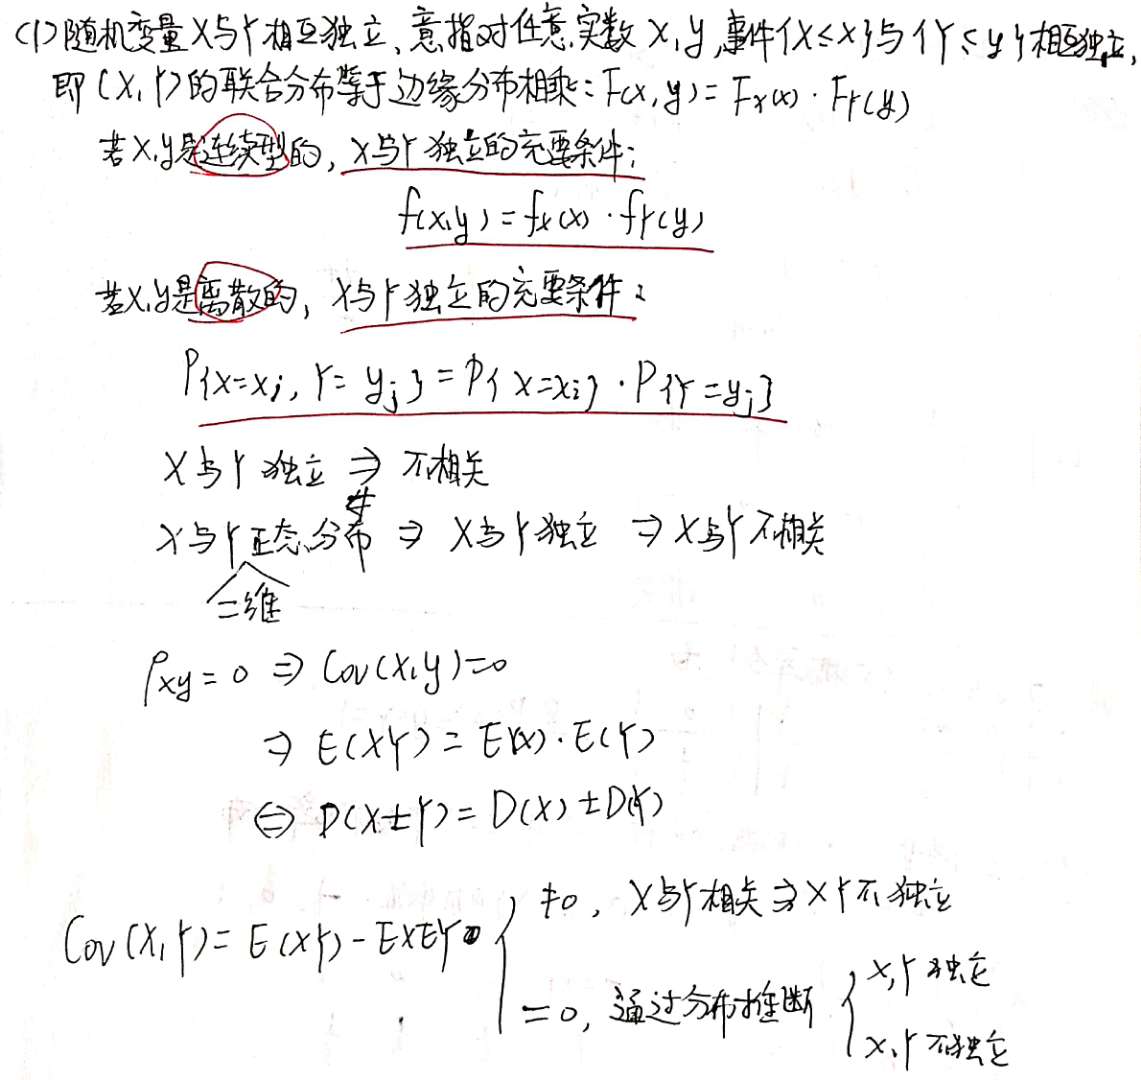 (1)随机变量X与Y相互独立、意指对任意实数x,y,事件{X≤x}与{Y≤y}相互独立,
即(X,Y)的联合分布等于边缘分布相乘:F(x,y)=Fx(x)·FY(y)
若X,y是连续型的,X与Y独立的充要条件:
f(x,y)=fx(x)·fY(y)
若X,y是离散的,X与Y独立的充要条件:
P{X=xi,Y=yj}=P{X=xi}·P{Y=yj}
X与Y独立⇒不相关
X与Y正态分布⇒X与Y独立⇒X与Y不相关
二维
ρxy=0⇒Cov(X,y)=0
⇒E(XY)=E(X)·E(Y)
⇔D(X±Y)=D(X)±D(Y)
≠0,X与Y相关⇒XY不独立
Cov(X,Y)=E(XY)-EXEY
X,Y独立
=0,通过分布推断
X,Y不独立